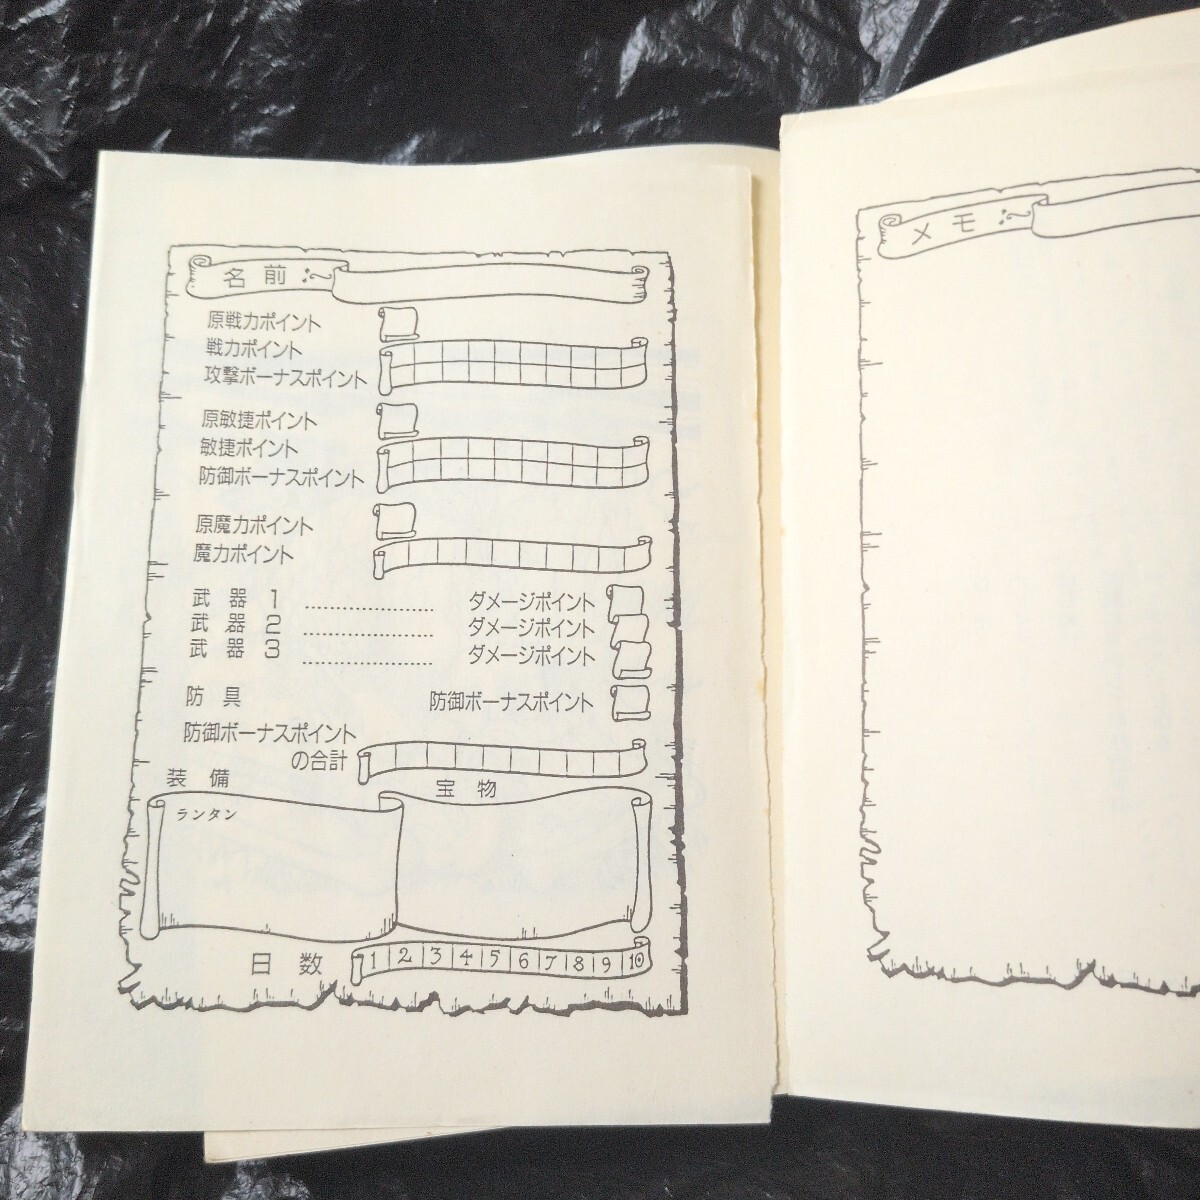 名前
原戦力ポイント
戦力ポイント
攻撃ボーナスポイント
原敏捷ポイント
敏捷ポイント
防御ボーナスポイント
原魔力ポイント
魔力ポイント
武器 1 ダメージポイント
武器 2 ダメージポイント
武器 3 ダメージポイント
防具 防御ボーナスポイント
防御ボーナスポイント
の合計
装備 宝物
ランタン
日数 1 2 3 4 5 6 7 8 9 10
メモ